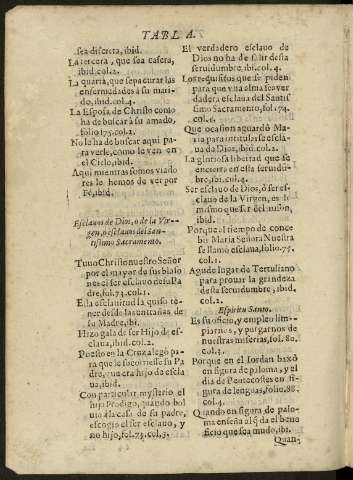 TABLA.
sea discreta, ibid.
La tercera, que sea casera,
ibid. col. 2.
La quarta, que sepa curar las
enfermedades à su mari-
do, ibid. col. 4.
La Esposa de Christo como
ha de buscar à su amado,
folio 175. col. 2.
No le ha de buscar aqui pa
ra verle, como le ven en
el Cielo, ibid.
Aqui mientras somos viado
res le hemos de ver por
Fè, ibid.
Esclauos de Dios, ò de la Vir-
gen, ò esclauos del San-
tissimo Sacramento.
Tuuo Christo nuestro Señor
por el mayor de sus blaso
nes el ser esclauo de su Pa
dre, fol. 73. col. 1.
Esta esclauitud la quiso te-
ner desde las entrañas de
su Madre, ibi.
Hizo gala de ser Hijo de es-
claua, ibid. col. 2.
Puesto en la Cruz alegò pa
ra que le socorriesse su Pa
dre, que era hijo de escla
ua, ibid.
Con particular mysterio el
hijo Prodigo, quando bol
uio à la casa de su padre,
escogio el ser esclauo, y
no hijo, fol. 73. col. 3.
El verdadero esclauo de
Dios no ha de salir desta
seruidumbre, ibi. col. 4.
Los requisitos que se piden
para que vna alma sea ver
dadera esclaua del Santis
simo Sacramento, fol. 74.
col. 1.
Que ocasion aguardò Ma
ria para intitularse escla-
ua de Dios, ibid. col. 2.
La gloriosa libertad que se
encierra en esta seruidu-
bre, ibi. col. 3.
Ser esclauo de Dios, ò ser es
clauo de la Virgen, es lo
mismo que ser del mismo,
ibid.
Porque el tiempo de conce
bir Maria Señora Nuestra
se llamò esclaua, folio. 75.
col. 1.
Agudo lugar de Tertuliano
para prouar la grandeza
desta seruidumbre, ibid.
col. 2.
Espiritu Santo.
Es su oficio, y empleo lim-
piarnos, y purgarnos de
nuestras miserias, fol. 80.
col. 3.
Porque en el Iordan baxò
en figura de paloma, y el
dia de Pentecostes en fi-
gura de lenguas, folio. 88.
col. 4.
Quando en figura de palo-
ma enseña al q̃ da el bene
ficio que sea mudo, ibi.
Quan-